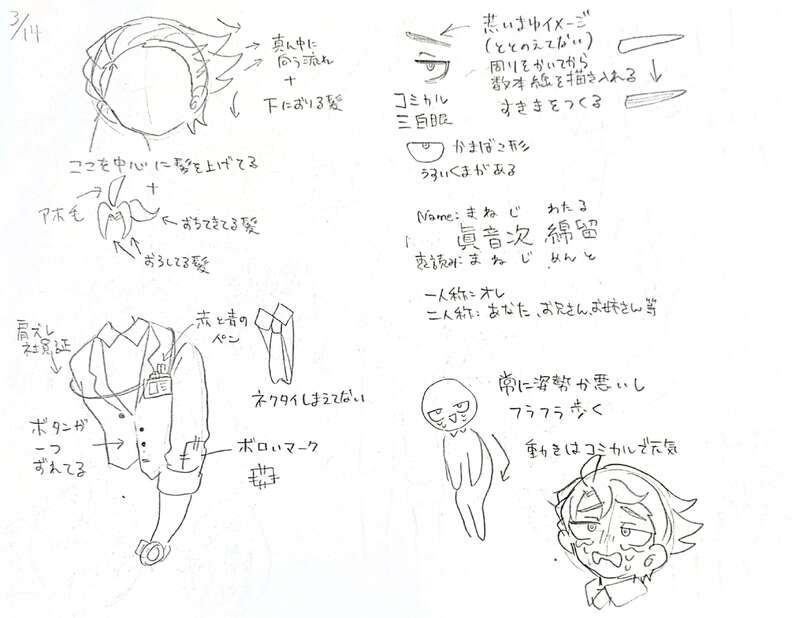 3/14
真ん中に
向う流れ
+
下におりる髪
ここを中心に髪を上げてる
+
アホ毛
おちてきてる髪
おろしてる髪
肩えし
社員証
赤と青の
ペン
ネクタイしまえてない
ボタンが
一つ
ずれてる
ボロいマーク
悲いまゆイメージ
(ととのえてない)
周りをかいてから
数本線を描き入れる
すきまをつくる
コミカル
三白眼
かまぼこ形
うすいくまがある
Name: まねじ わたる
眞音次 綿留
裏読み: まねじ めんと
一人称: オレ
二人称: あなた、お兄さん、お姉さん等
常に姿勢が悪いし
フラフラ歩く
動きはコミカルで元気